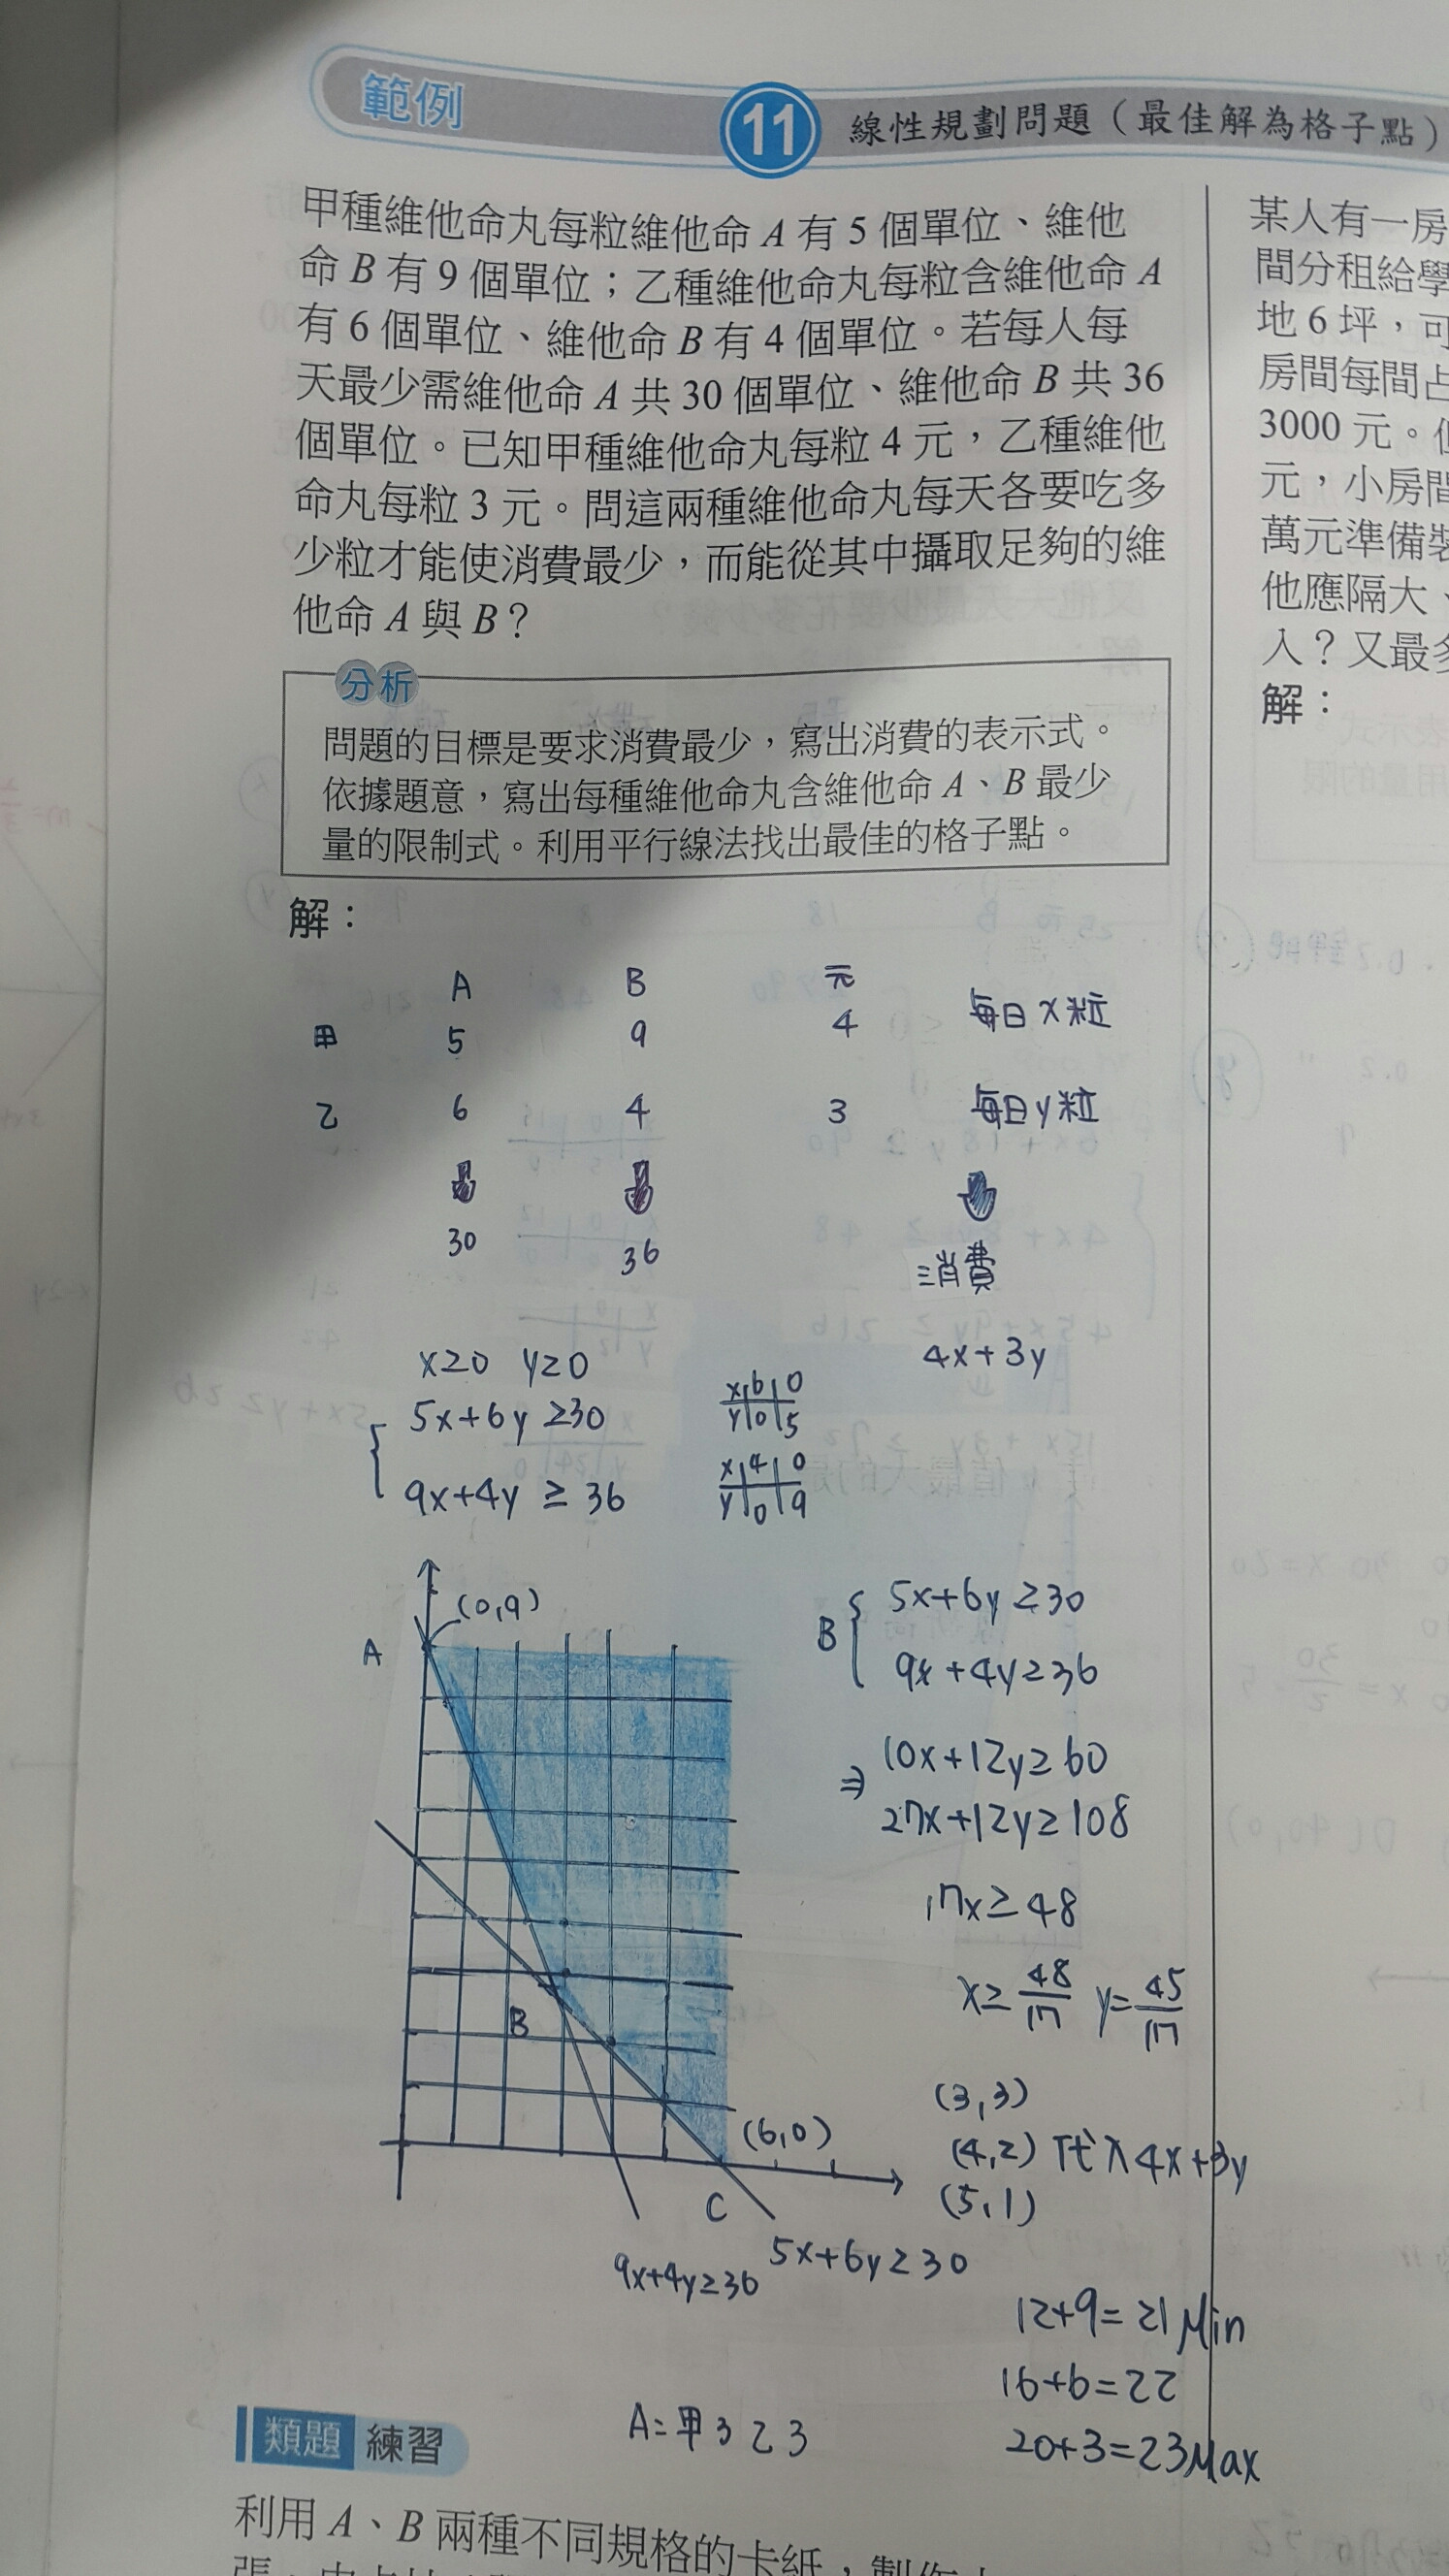 範例 11 線性規劃問題（最佳解為格子點）
甲種維他命丸每粒維他命 A 有 5 個單位、維他
命 B 有 9 個單位；乙種維他命丸每粒含維他命 A
有 6 個單位、維他命 B 有 4 個單位。若每人每
天最少需維他命 A 共 30 個單位、維他命 B 共 36
個單位。已知甲種維他命丸每粒 4 元，乙種維他
命丸每粒 3 元。問這兩種維他命丸每天各要吃多
少粒才能使消費最少，而能從其中攝取足夠的維
他命 A 與 B？
分析
問題的目標是要求消費最少，寫出消費的表示式。
依據題意，寫出每種維他命丸含維他命 A、B 最少
量的限制式。利用平行線法找出最佳的格子點。
解：
A B 元
甲 5 9 4 每日x粒
乙 6 4 3 每日y粒
30 36 消費
4x+3y
x≥0 y≥0
5x+6y ≥30
x 6 0
y 0 5
9x+4y ≥ 36
x 4 0
y 0 9
(0,9)
A
B
(6,0)
C
9x+4y≥36
5x+6y≥30
B { 5x+6y≥30
9x+4y≥36
⇒ 10x+12y≥60
27x+12y≥108
17x≥48
x≥48/17 y=45/17
(3,3)
(4,2) 代入4x+3y
(5,1)
12+9=21 Min
16+6=22
20+3=23 Max
A=甲3乙3
類題 練習
利用 A、B 兩種不同規格的卡紙，製作
某人有一房
間分租給學
地 6 坪，可
房間每間占
3000 元。
元，小房間
萬元準備裝
他應隔大、
入？又最多
解：